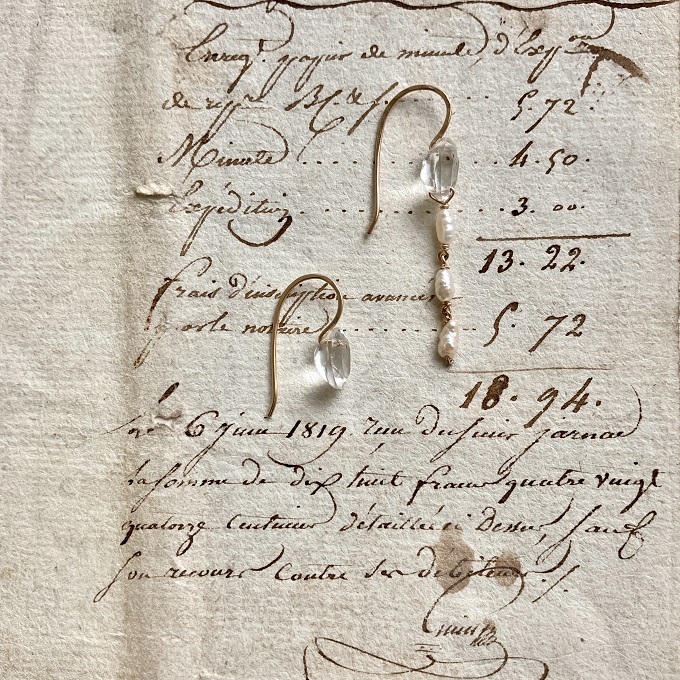 Enreg.t papier de minute, d'Exp.on
de rép.re . . . . . . 5. 72.
Minute . . . . . . 4. 50.
Expédition . . . . . . 3. 00.
13. 22.
frais d'inscription avancés
par le notaire . . . . . . 5. 72
18. 94.
6 juin 1819. Jarnac
la somme de dix huit francs quatre vingt
quatorze centimes détaillée ci dessus, sauf
son recours contre ses débiteurs ./.